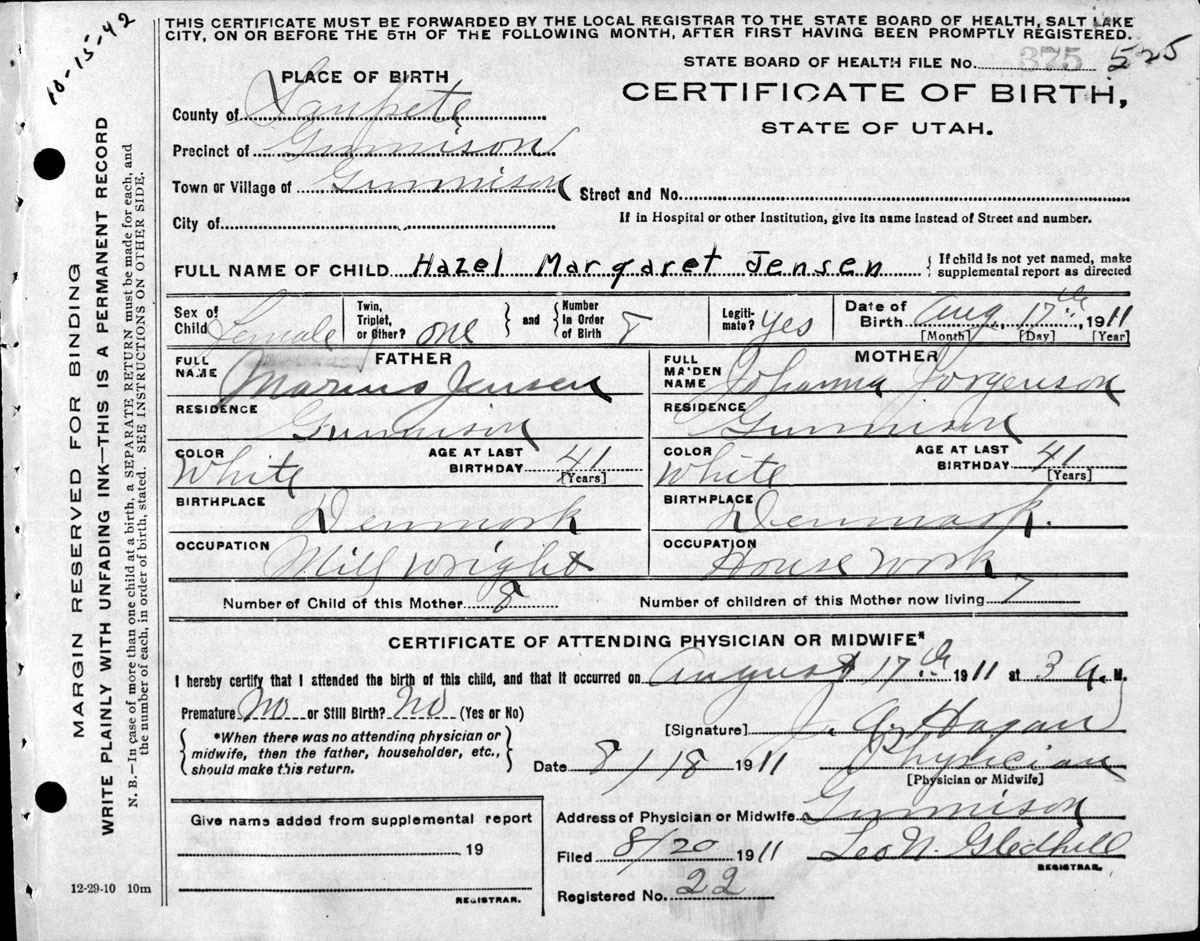 10-15-42
THIS CERTIFICATE MUST BE FORWARDED BY THE LOCAL REGISTRAR TO THE STATE BOARD OF HEALTH, SALT LAKE
CITY, ON OR BEFORE THE 5TH OF THE FOLLOWING MONTH, AFTER FIRST HAVING BEEN PROMPTLY REGISTERED.
MARGIN RESERVED FOR BINDING
WRITE PLAINLY WITH UNFADING INK—THIS IS A PERMANENT RECORD
N. B.—In case of more than one child at a birth, a SEPARATE RETURN must be made for each, and
the number of each, in order of birth, stated. SEE INSTRUCTIONS ON OTHER SIDE.
STATE BOARD OF HEALTH FILE No. 375 525
PLACE OF BIRTH
CERTIFICATE OF BIRTH,
STATE OF UTAH.
County of Sanpete
Precinct of Gunnison
Town or Village of Gunnison Street and No.
City of If in Hospital or other Institution, give its name instead of Street and number.
FULL NAME OF CHILD Hazel Margaret Jensen { If child is not yet named, make
supplemental report as directed
Sex of Child Female Twin, Triplet, or Other? one } and { Number In Order of Birth Legitimate? yes Date of Birth Aug, 17th, 1911
[Month] [Day] [Year]
FATHER MOTHER
FULL NAME Marius Jensen FULL MAIDEN NAME Johanna Jorgenson
RESIDENCE Gunnison RESIDENCE Gunnison
COLOR White AGE AT LAST BIRTHDAY 41 [Years] COLOR White AGE AT LAST BIRTHDAY 41 [Years]
BIRTHPLACE Denmark BIRTHPLACE Denmark.
OCCUPATION Mill wright OCCUPATION House work
Number of Child of this Mother 8 Number of children of this Mother now living 7
CERTIFICATE OF ATTENDING PHYSICIAN OR MIDWIFE*
I hereby certify that I attended the birth of this child, and that it occurred on August 17th 1911 at 3 a. M.
Premature No or Still Birth? No (Yes or No)
[Signature] J. A. Hagan
{ *When there was no attending physician or
midwife, then the father, householder, etc.,
should make this return. }
Date 8/18 1911 Physician
[Physician or Midwife]
Give name added from supplemental report
19
REGISTRAR.
Address of Physician or Midwife Gunnison
Filed 8/20 1911 Leo N. Gledhill
REGISTRAR.
Registered No. 22
12-29-10 10m